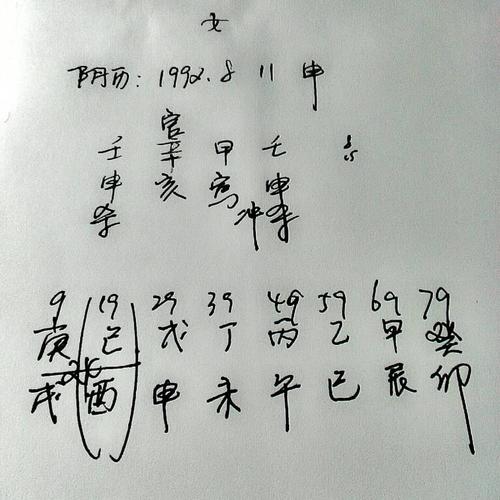 女
阴历: 1992. 8 11 申
官
壬 辛 甲 壬
申 亥 寅 申
杀 冲 杀
9 19 29 39 49 59 69 79
庚 己 戊 丁 丙 乙 甲 癸
戌 酉 申 未 午 巳 辰 卯